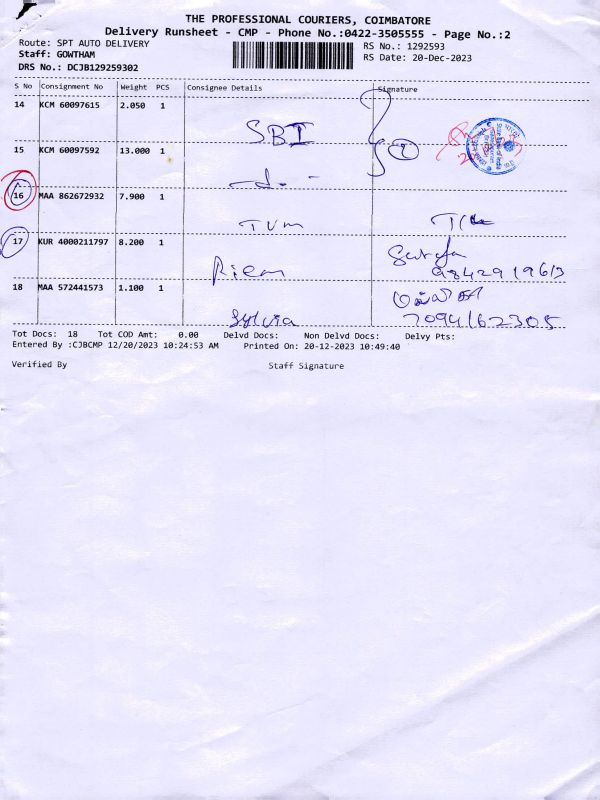 THE PROFESSIONAL COURIERS, COIMBATORE
Delivery Runsheet - CMP - Phone No.:0422-3505555 - Page No.:2
Route: SPT AUTO DELIVERY
RS No.: 1292593
Staff: GOWTHAM
RS Date: 20-Dec-2023
DRS No.: DCJB129259302
S No Consignment No Weight PCS Consignee Details Signature
14 KCM 60097615 2.050 1
SBI
2
15 KCM 60097592 13.000 1
-d.-
16 MAA 862672932 7.900 1
TVM
17 KUR 4000211797 8.200 1
Riem
9842919613
18 MAA 572441573 1.100 1
Sylvia 7094162305
Tot Docs: 18 Tot COD Amt: 0.00 Delvd Docs: Non Delvd Docs: Delvy Pts:
Entered By :CJBCMP 12/20/2023 10:24:53 AM Printed On: 20-12-2023 10:49:40
Verified By Staff Signature